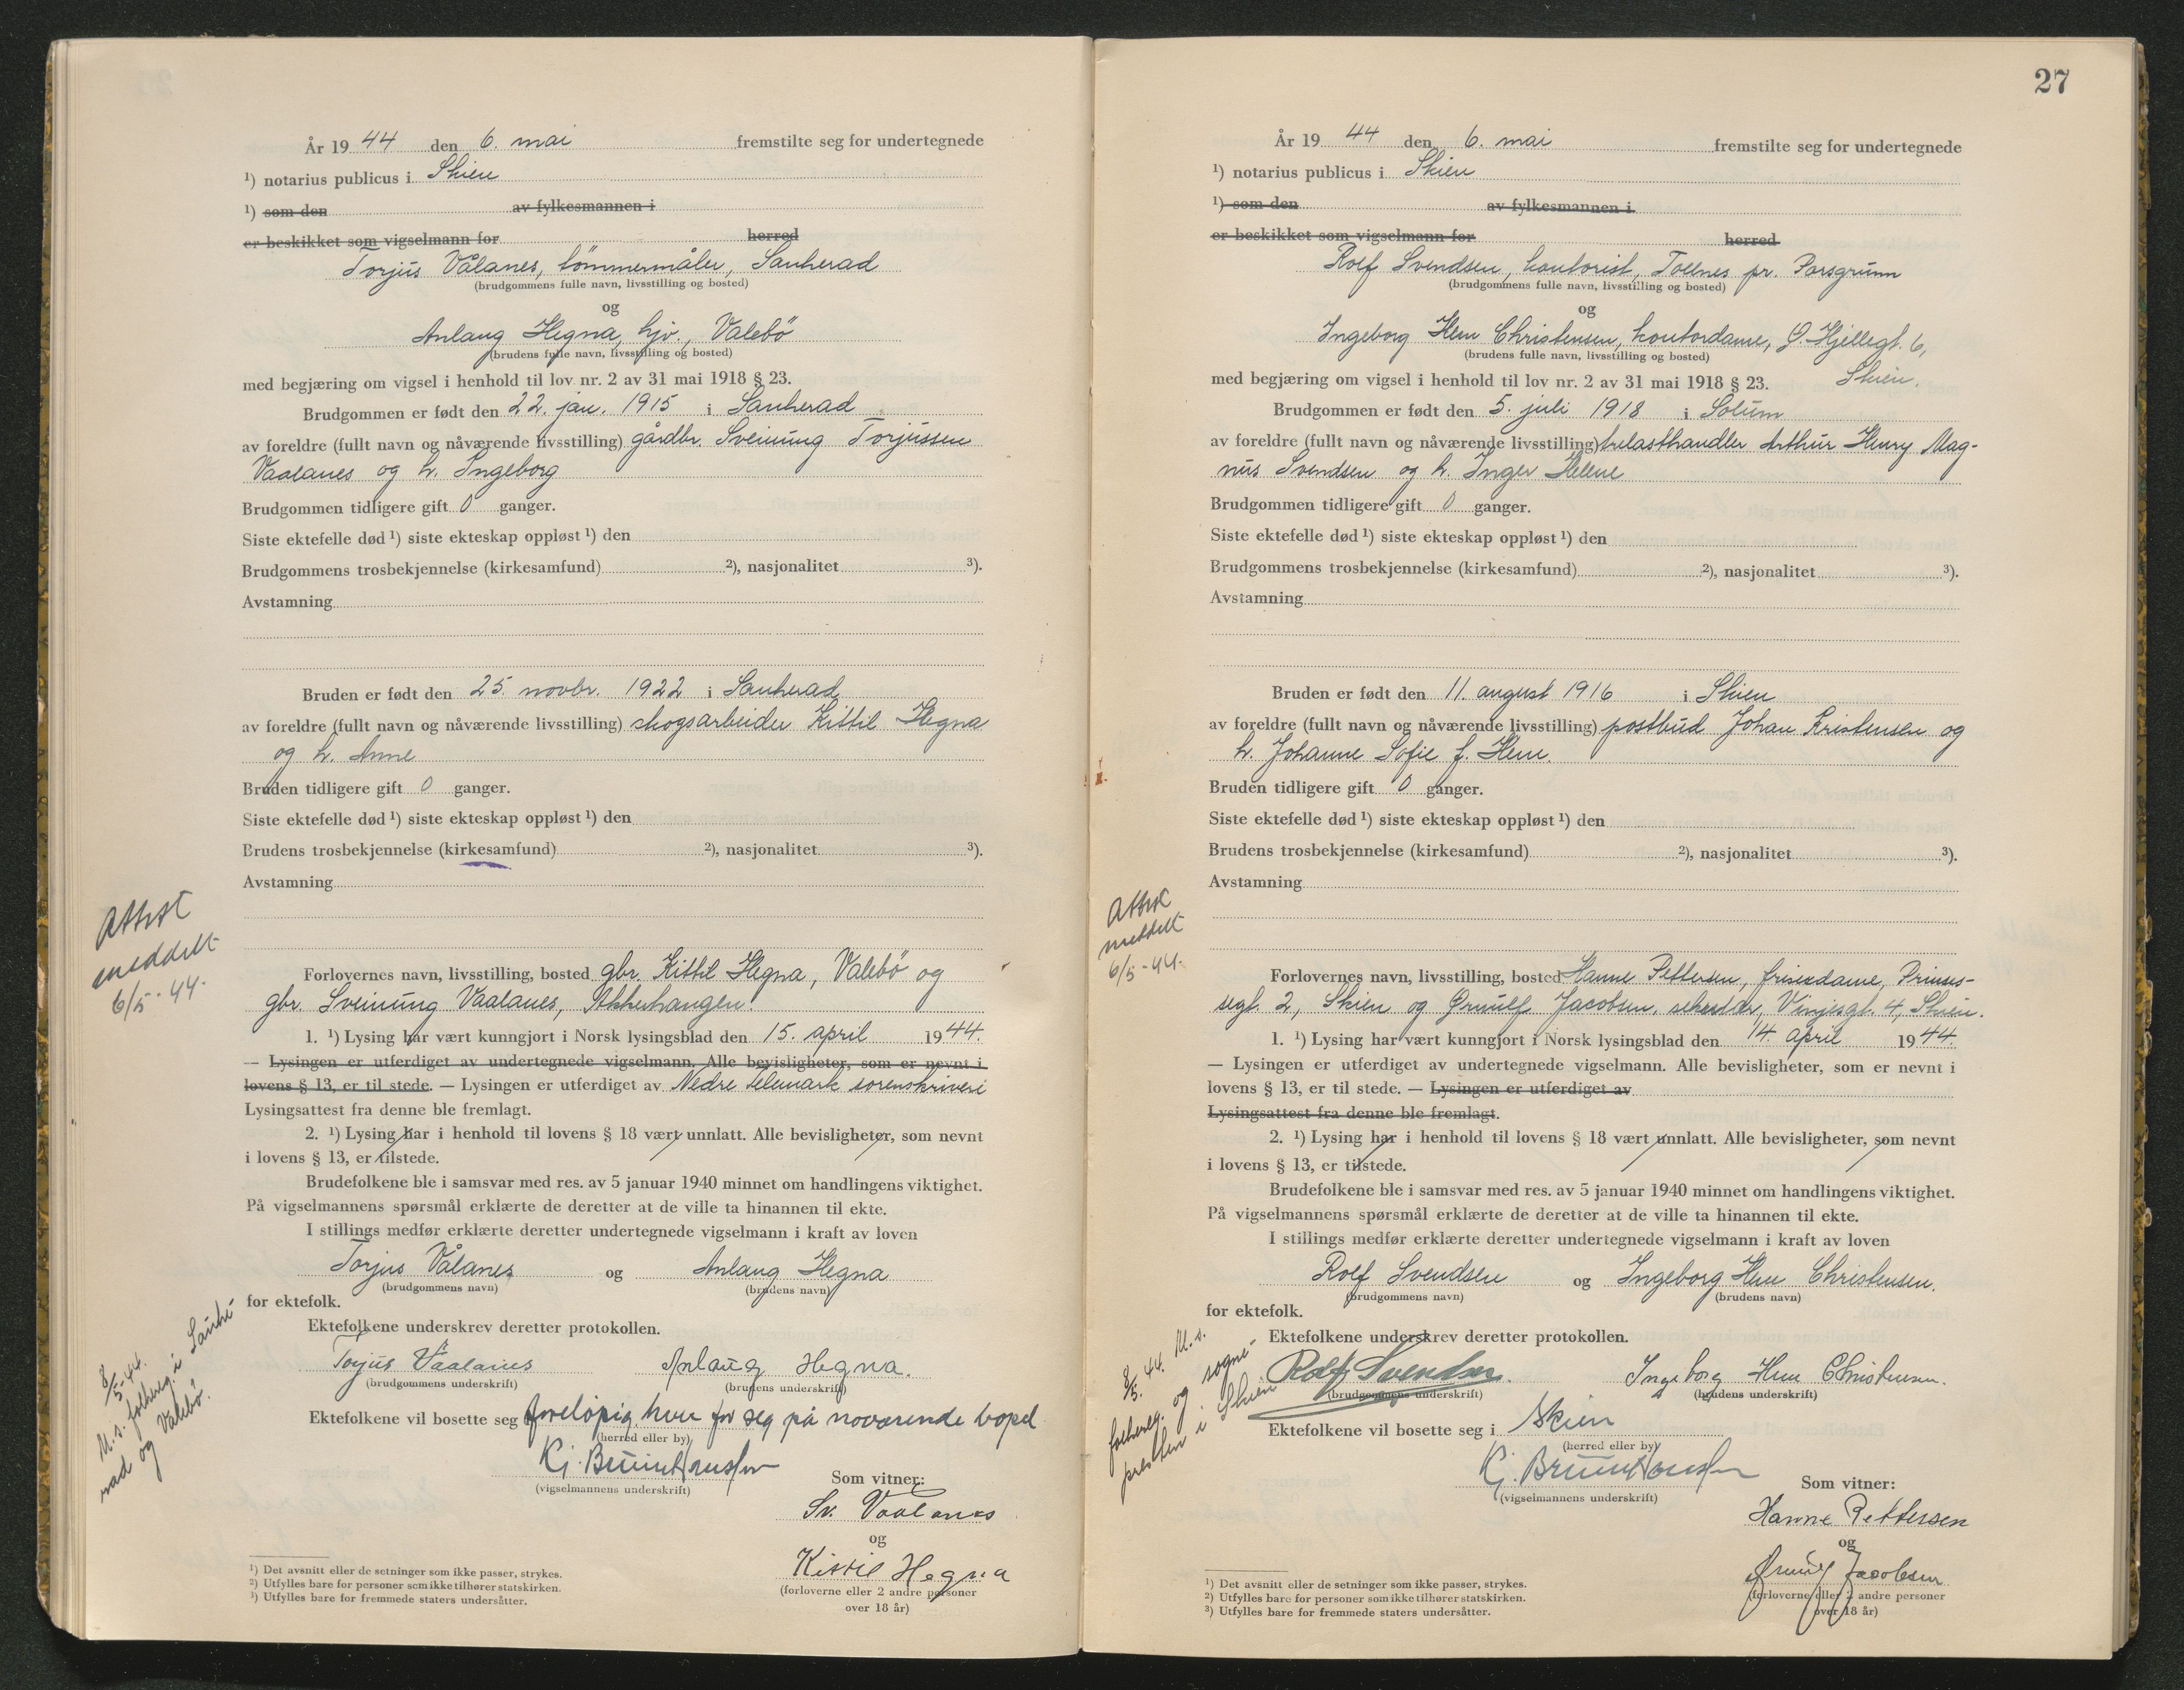 År 19 44 den 6. mai fremstilte seg for undertegnede
¹) notarius publicus i Skien
¹) som den av fylkesmannen i
er beskikket som vigselmann for herred
Torjus Vålanes, tömmermåler, Sauherad
(brudgommens fulle navn, livsstilling og bosted)
og
Anlaug Hegna, hjv., Valebö
(brudens fulle navn, livsstilling og bosted)
med begjæring om vigsel i henhold til lov nr. 2 av 31 mai 1918 § 23.
Brudgommen er født den 22. jan. 1915 i Sauherad
av foreldre (fullt navn og nåværende livsstilling) gårdbr. Sveinung Torjussen
Vaalanes og h. Ingeborg
Brudgommen tidligere gift 0 ganger.
Siste ektefelle død ¹) siste ekteskap oppløst ¹) den
Brudgommens trosbekjennelse (kirkesamfund) ²), nasjonalitet ³).
Avstamning
Bruden er født den 25. novbr. 1922 i Sauherad
av foreldre (fullt navn og nåværende livsstilling) skogsarbeider Kittil Hegna
og h. Anne
Bruden tidligere gift 0 ganger.
Siste ektefelle død ¹) siste ekteskap oppløst ¹) den
Brudens trosbekjennelse (kirkesamfund) ²), nasjonalitet ³).
Avstamning
Attest
meddelt
6/5-44.
Forlovernes navn, livsstilling, bosted gbr. Kittil Hegna, Valebö og
gbr. Sveinung Vaalanes, Akkerhaugen.
1. ¹) Lysing har vært kunngjort i Norsk lysingsblad den 15. april 1944.
— Lysingen er utferdiget av undertegnede vigselmann. Alle bevisligheter, som er nevnt i
lovens § 13, er til stede. — Lysingen er utferdiget av Nedre Telemark sorenskriveri
Lysingsattest fra denne ble fremlagt.
2. ¹) Lysing har i henhold til lovens § 18 vært unnlatt. Alle bevisligheter, som nevnt
i lovens § 13, er tilstede.
Brudefolkene ble i samsvar med res. av 5 januar 1940 minnet om handlingens viktighet.
På vigselmannens spørsmål erklærte de deretter at de ville ta hinannen til ekte.
I stillings medfør erklærte deretter undertegnede vigselmann i kraft av loven
Torjus Vålanes og Anlaug Hegna
(brudgommens navn) (brudens navn)
for ektefolk.
Ektefolkene underskrev deretter protokollen.
Torjus Vaalanes Anlaug Hegna.
(brudgommens underskrift) (brudens underskrift)
8/5-44.
M.s. folkereg. i Sauhe-
rad og Valebö.
Ektefolkene vil bosette seg foreløpig hver for seg på noværende bopel
(herred eller by)
Kj. Bruun Hanssen
(vigselmannens underskrift)
Som vitner:
Sv. Vaalanes
og
Kittil Hegna
(forloverne eller 2 andre personer
over 18 år)
¹) Det avsnitt eller de setninger som ikke passer, strykes.
²) Utfylles bare for personer som ikke tilhører statskirken.
³) Utfylles bare for fremmede staters undersåtter.
27
År 19 44 den 6. mai fremstilte seg for undertegnede
¹) notarius publicus i Skien
¹) som den av fylkesmannen i
er beskikket som vigselmann for herred
Rolf Svendsen, kontorist, Tollnes pr. Porsgrunn
(brudgommens fulle navn, livsstilling og bosted)
og
Ingeborg Hem Christensen, kontordame, G. Hjellegt. 6,
(brudens fulle navn, livsstilling og bosted)
med begjæring om vigsel i henhold til lov nr. 2 av 31 mai 1918 § 23. Skien.
Brudgommen er født den 5. juli 1918 i Solum
av foreldre (fullt navn og nåværende livsstilling) trelasthandler Arthur Henry Mag-
nus Svendsen og h. Inger Helene
Brudgommen tidligere gift 0 ganger.
Siste ektefelle død ¹) siste ekteskap oppløst ¹) den
Brudgommens trosbekjennelse (kirkesamfund) ²), nasjonalitet ³).
Avstamning
Bruden er født den 11. august 1916 i Skien
av foreldre (fullt navn og nåværende livsstilling) postbud Johan Kristensen og
h. Johanne Sofie f. Hem.
Bruden tidligere gift 0 ganger.
Siste ektefelle død ¹) siste ekteskap oppløst ¹) den
Brudens trosbekjennelse (kirkesamfund) ²), nasjonalitet ³).
Avstamning
Attest
meddelt
6/5-44.
Forlovernes navn, livsstilling, bosted Hanne Pettersen, friserdame, Prinses-
segt. 2, Skien og Ørnulf Jacobsen, sekretær, Vinjesgt. 4, Skien.
1. ¹) Lysing har vært kunngjort i Norsk lysingsblad den 14. april 1944.
— Lysingen er utferdiget av undertegnede vigselmann. Alle bevisligheter, som er nevnt i
lovens § 13, er til stede. — Lysingen er utferdiget av
Lysingsattest fra denne ble fremlagt.
2. ¹) Lysing har i henhold til lovens § 18 vært unnlatt. Alle bevisligheter, som nevnt
i lovens § 13, er tilstede.
Brudefolkene ble i samsvar med res. av 5 januar 1940 minnet om handlingens viktighet.
På vigselmannens spørsmål erklærte de deretter at de ville ta hinannen til ekte.
I stillings medfør erklærte deretter undertegnede vigselmann i kraft av loven
Rolf Svendsen og Ingeborg Hem Christensen.
(brudgommens navn) (brudens navn)
for ektefolk.
Ektefolkene underskrev deretter protokollen.
Rolf Svendsen. Ingeborg Hem Christensen.
(brudgommens underskrift) (brudens underskrift)
8/5. 44. M.s.
folkereg. og sogne-
presten i Skien
Ektefolkene vil bosette seg i Skien
(herred eller by)
Kj. Bruun Hanssen
(vigselmannens underskrift)
Som vitner:
Hanne Pettersen
og
Ørnulf Jacobsen
(forloverne eller 2 andre personer
over 18 år)
¹) Det avsnitt eller de setninger som ikke passer, strykes.
²) Utfylles bare for personer som ikke tilhører statskirken.
³) Utfylles bare for fremmede staters undersåtter.